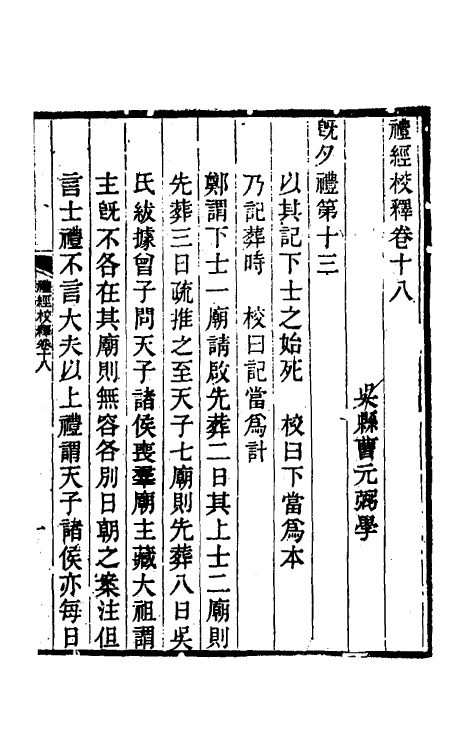 禮經校釋卷十八
吳縣曹元弼學
旣夕禮第十三
以其記下士之始死　校曰下當爲本
乃記葬時　校曰記當爲計
鄭謂下士一廟請啟先葬二日其上士二廟則
先葬三日疏推之至天子七廟則先葬八日吳
氏紱據曾子問天子諸侯喪羣廟主藏大祖謂
主旣不各在其廟則無容各別日朝之案注但
言士禮不言大夫以上禮謂天子諸侯亦每日
禮經校釋卷十八
一